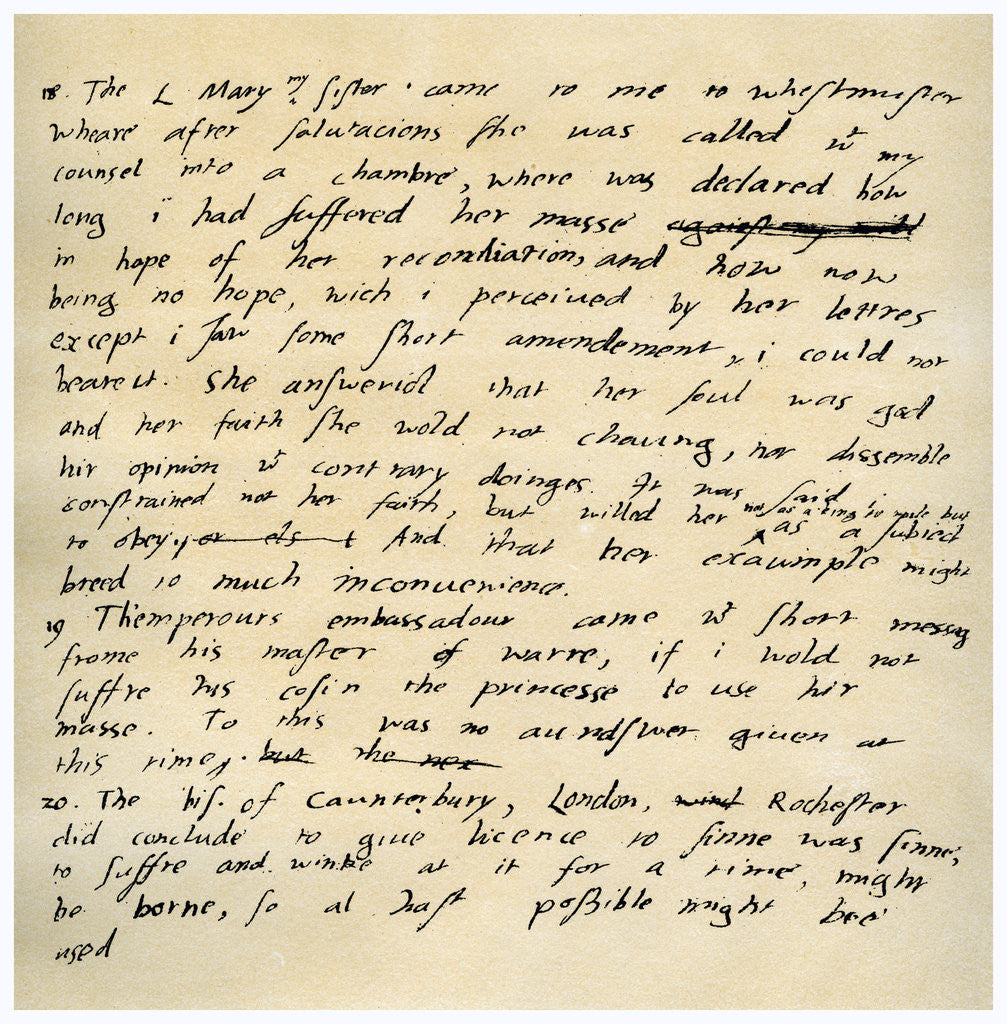 18. The L Mary my sister came to me to whestmuster
wheare after salutacions she was called wt my
counsel into a chambre, where was declared how
long i had suffered her masse against my will
in hope of her reconciliation, and how now
being no hope, wich i perceiued by her lettres
except i saw some short amendement, i could not
beare it. She answerid that her soul was god
and her faith she wold not chaung, nor dissemble
hir opinion wt contrary doinges. It was said i
constrained not her faith, but willed her not as a king to rule but
to obey, or els And that her exaumple might as a subiect
breed to much inconuenience.
19 Themperours embassadour came wt short messag
frome his master of warre, if i wold not
suffre his cosin the princesse to use hir
masse. To this was no aundswer giuen at
this time, but the nex
20. The bis. of Caunterbury, London, Rochester
did conclude to giue licence to sinne was sinne,
to suffre and winke at it for a time, might
be borne, so al hast possible might bee
used